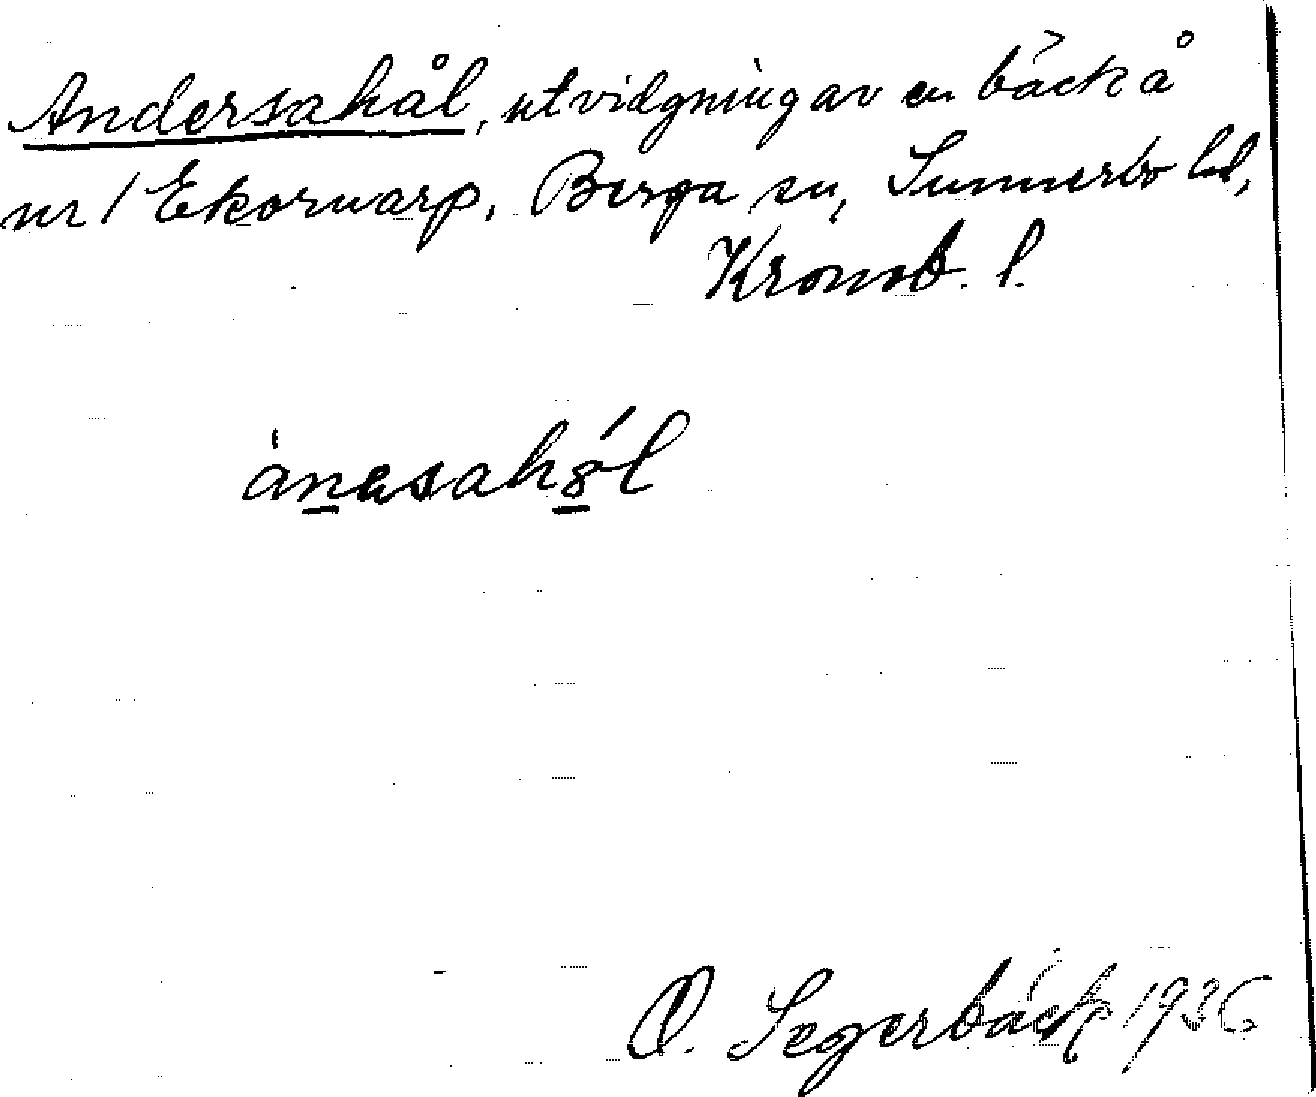 Andersahål, utvidgning av en bäck å
nr 1 Ekornarp, Berga sn, Sunnerbo hd,
Kronob. l.
O. Segerbäck 1936